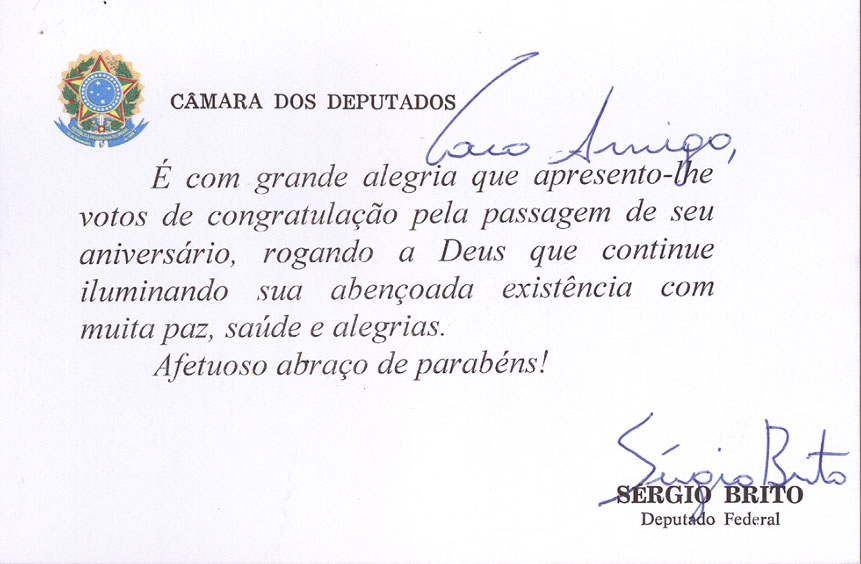 CÂMARA DOS DEPUTADOS
Caro Amigo,
É com grande alegria que apresento-lhe
votos de congratulação pela passagem de seu
aniversário, rogando a Deus que continue
iluminando sua abençoada existência com
muita paz, saúde e alegrias.
Afetuoso abraço de parabéns!
Sérgio Brito
SÉRGIO BRITO
Deputado Federal